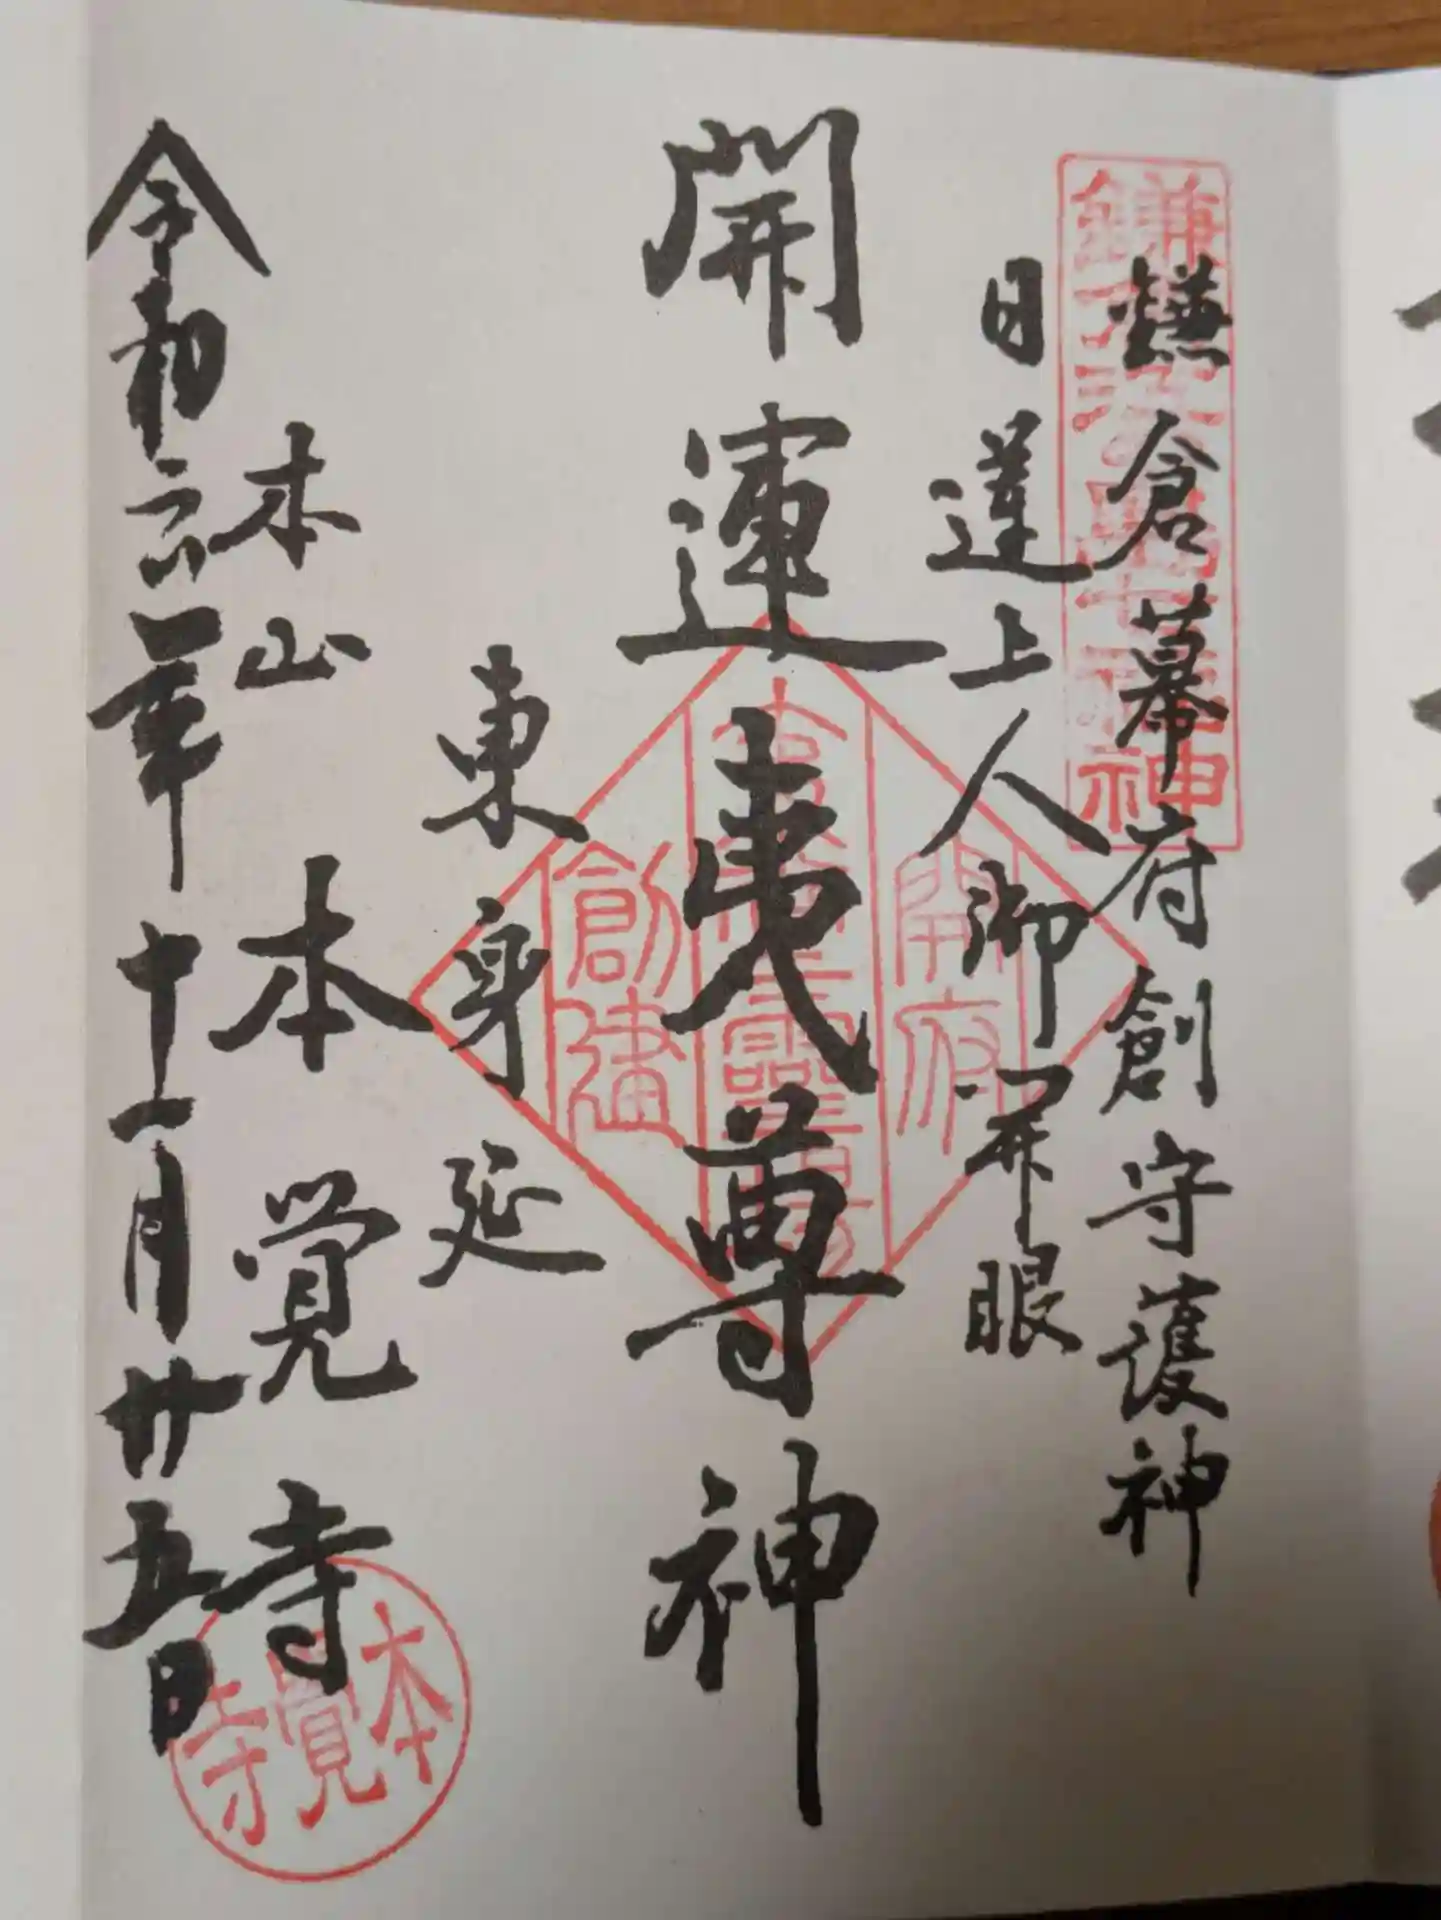 鎌倉幕府創守護神
日蓮上人御開眼
開運夷尊神
東身延
本山 本覚寺
令和六年十一月廿五日
開府
創建
本覚寺